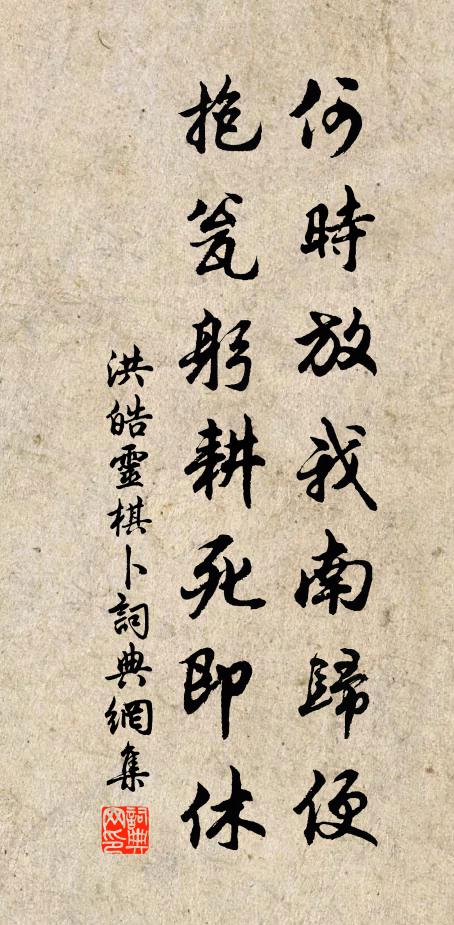 何時放我南歸便
抱瓮躬耕死即休
洪皓靈棋卜詞典網集
詞典网印